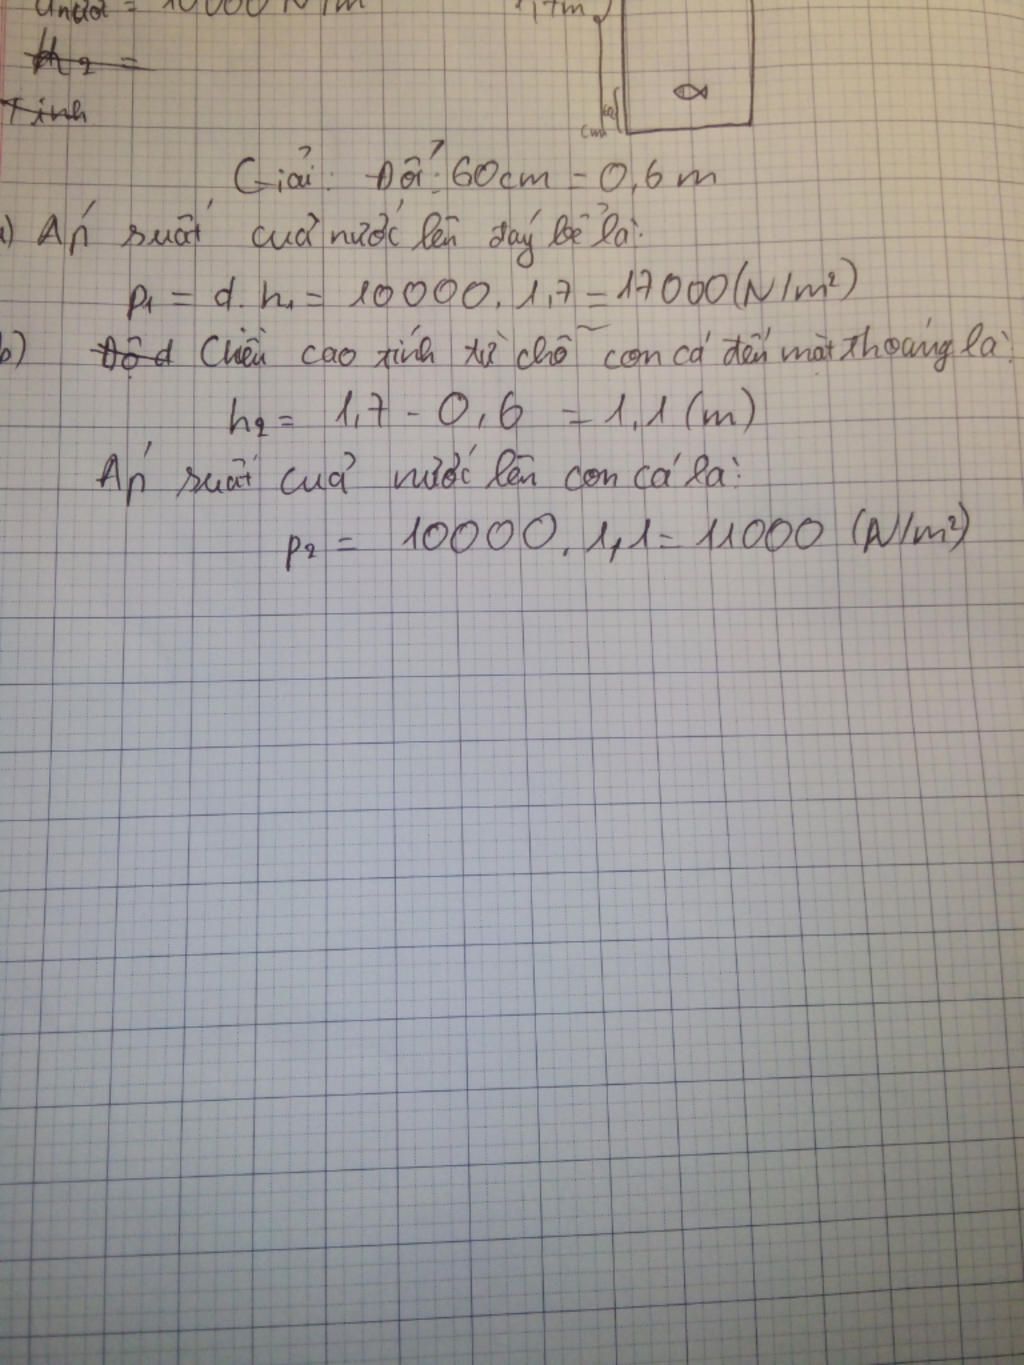 dnước = 10000 N/m
1,7m
h2 =
Tính
60
cm
Giải: Đổi: 60cm = 0,6 m
a) Áp suất của nước lên đáy bể là:
p1 = d. h1 = 10000. 1,7 = 17000(N/m²)
b) Độ d Chiều cao tính từ chỗ con cá đến mặt thoáng là:
h2 = 1,7 - 0,6 = 1,1 (m)
Áp suất của nước lên con cá là:
p2 = 10000. 1,1 = 11000 (N/m²)